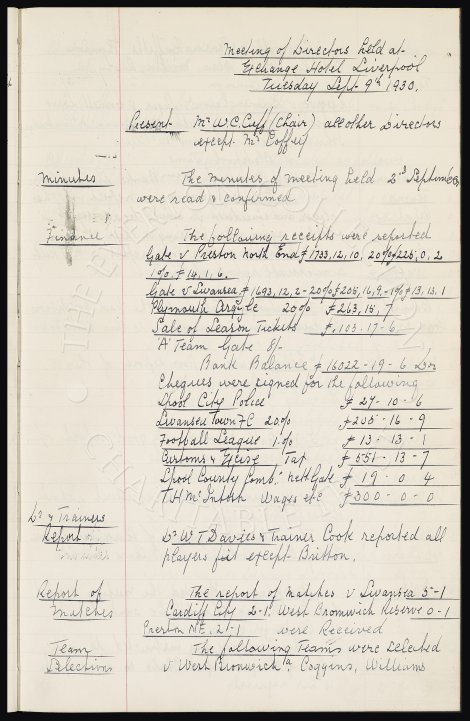 Meeting of Directors held at
Exchange Hotel Liverpool
Tuesday Sept 9th 1930.
Present Mr W.C. Cuff (Chair) all other Directors
except Mr Coffey
Minutes The minutes of meeting held 2nd September
were read & confirmed
Finance The following receipts were reported
Gate v Preston North End £1733,12,10, 20% £225,0,2
1% £14,1,6.
Gate v Swansea £1693,12,2 - 20% £205,16,9 - 1% £13,13,1
Plymouth Argyle 20% £263,15,7
Sale of Season Tickets £103-17-6
'A' Team Gate 8/-
Bank Balance £16022-19-6
Cheques were signed for the following
Lpool City Police £27-10-6
Swansea Town FC 20% £205-16-9
Football League 1% £13-13-1
Customs & Excise Tax £551-13-7
Lpool County Comb. nett Gate £19-0-4
T.H. McIntosh Wages etc £300-0-0
Dr & Trainers
Report Dr W T Davies & Trainer Cook reported all
players fit except Britton.
Report of The report of matches v Swansea 5-1
Matches Cardiff City 2-1, West Bromwich Reserve 0-1
Preston N.E. 2-1 were Received
Team The following Teams were selected
Selections v West Bromwich "A" Coggins, Williams
THE EVERTON
CHARITABLE